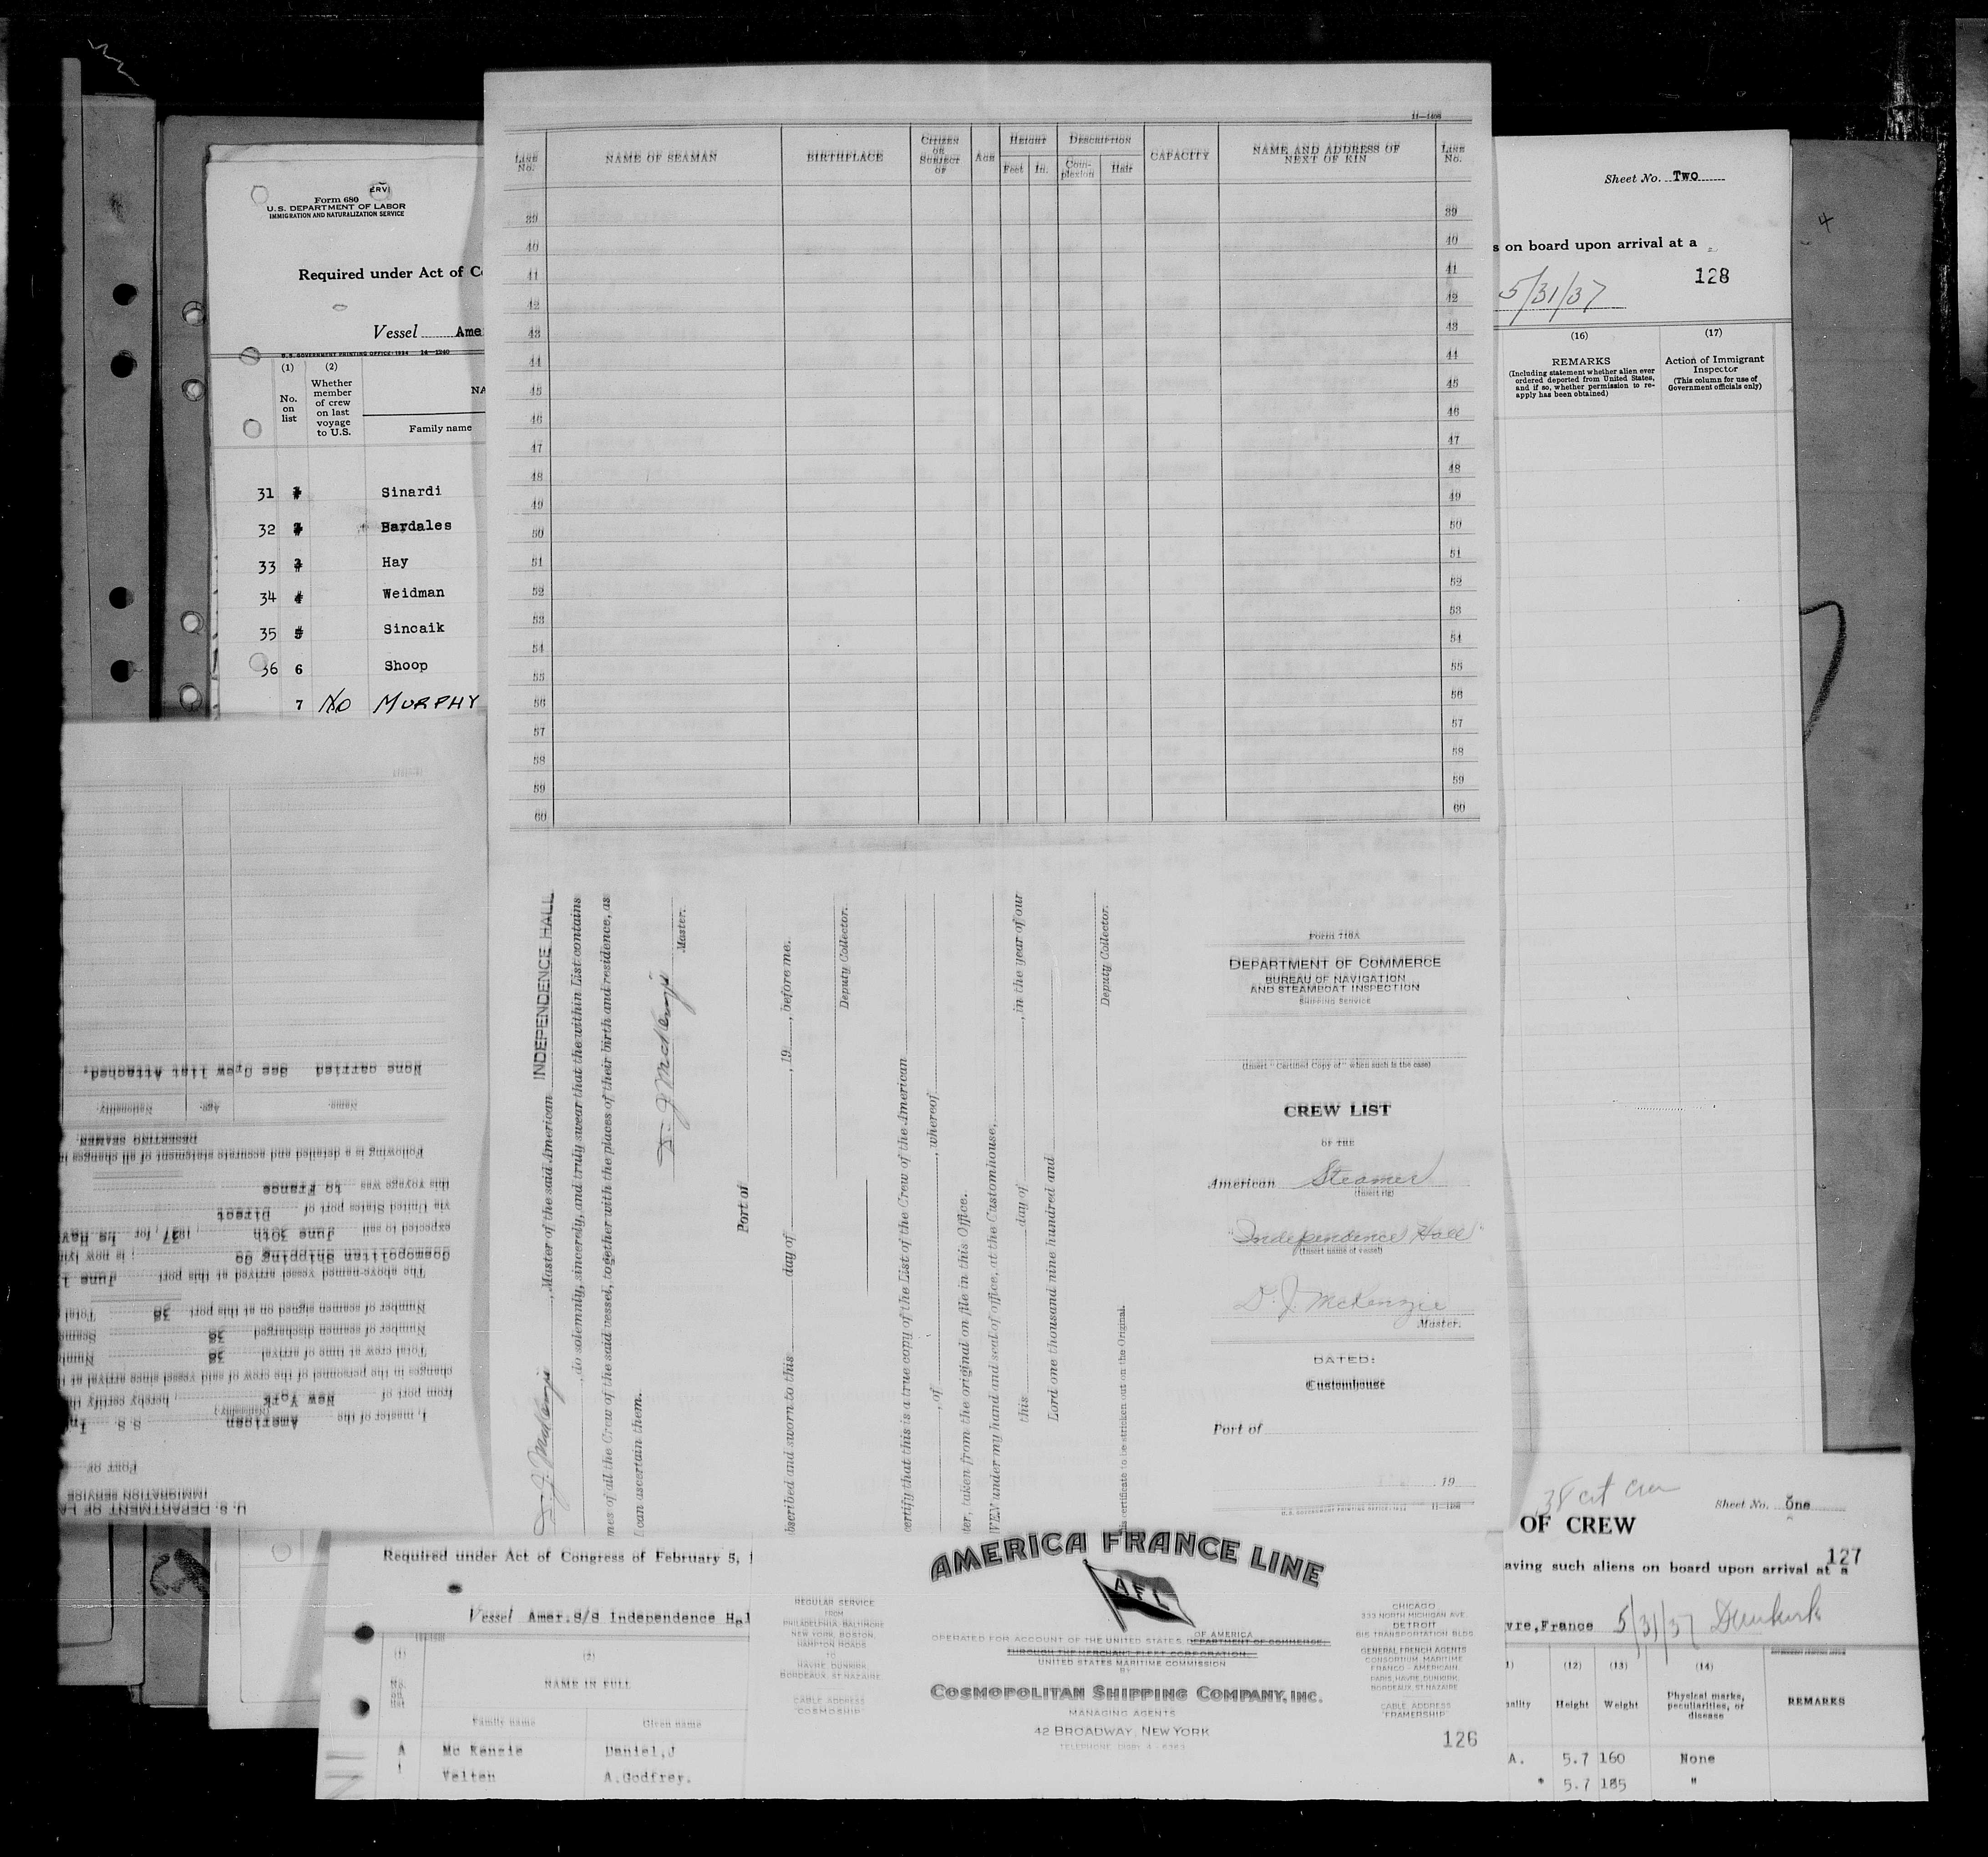 Form 680
U.S. DEPARTMENT OF LABOR
IMMIGRATION AND NATURALIZATION SERVICE
Required under Act of C
Vessel Ame
U.S. GOVERNMENT PRINTING OFFICE: 1934 14—1240
(1) (2)
No. on list
Whether member of crew on last voyage to U.S.
NA
Family name
31 Sinardi
32 Bardales
33 Hay
34 Weidman
35 Sincaik
36 6 Shoop
7 NO MURPHY
11—1486
LINE No. NAME OF SEAMAN BIRTHPLACE CITIZEN OR SUBJECT OF AGE HEIGHT Feet In. DESCRIPTION Complexion Hair CAPACITY NAME AND ADDRESS OF NEXT OF KIN LINE No.
39 39
40 40
41 41
42 42
43 43
44 44
45 45
46 46
47 47
48 48
49 49
50 50
51 51
52 52
53 53
54 54
55 55
56 56
57 57
58 58
59 59
60 60
Sheet No. Two
s on board upon arrival at a
128
5/31/37
(16) (17)
REMARKS
(Including statement whether alien ever ordered deported from United States, and if so, whether permission to reapply has been obtained)
Action of Immigrant Inspector
(This column for use of Government officials only)
4
U. S. DEPARTMENT OF LA
IMMIGRATION SERVICE
PORT OF
I, master of the American S.S. In
from port of New York, hereby certify th
changes in the personnel of the crew of said vessel since arrival at t
Total crew at time of arrival 38 Numb
Number of seamen discharged 38 Seam
Number of seamen signed on at this port 38 Total
The above-named vessel arrived at this port June 1
Cosmopolitan Shipping Co ; is now lyin
expected to sail June 30th, 1937, for Le Hav
via United States port of Direct
this voyage was to France
Following is a detailed and accurate statement of all changes in
DESERTING SEAMEN
Name. Age. Nationality.
None carried See Crew list Attached.
D. J. McKenzie, Master of the said American INDEPENDENCE HALL
, do solemnly, sincerely, and truly swear that the within List contains
mes of all the Crew of the said vessel, together with the places of their birth and residence, as
I can ascertain them.
D. J. McKenzie
Master.
Port of
bscribed and sworn to this day of , 19 , before me.
Deputy Collector.
ertify that this is a true copy of the List of the Crew of the American
, of , whereof
ter, taken from the original on file in this Office.
VEN under my hand and seal of office, at the Customhouse,
this day of , in the year of our
Lord one thousand nine hundred and
Deputy Collector.
is certificate to be stricken out on the Original.
Form 716A
DEPARTMENT OF COMMERCE
BUREAU OF NAVIGATION
AND STEAMBOAT INSPECTION
SHIPPING SERVICE
(Insert "Certified Copy of" when such is the case)
CREW LIST
OF THE
American Steamer
(Insert rig)
"Independence Hall"
(Insert name of vessel)
D. J. McKenzie
Master.
DATED:
Customhouse
Port of
, 19
U.S. GOVERNMENT PRINTING OFFICE: 1934 11—1486
Required under Act of Congress of February 5, 1
Vessel Amer.S/S Independence Hal
(1) (2)
No. on list
NAME IN FULL
Family name Given name
Mc Kenzie Daniel,J
1 Velten A.Godfrey.
AMERICA FRANCE LINE
AFL
REGULAR SERVICE
FROM
PHILADELPHIA, BALTIMORE
NEW YORK, BOSTON,
HAMPTON ROADS
TO
HAVRE, DUNKIRK,
BORDEAUX, ST. NAZAIRE
CABLE ADDRESS
"COSMOSHIP"
OPERATED FOR ACCOUNT OF THE UNITED STATES DEPARTMENT OF COMMERCE
OF AMERICA
THROUGH THE MERCHANT FLEET CORPORATION
UNITED STATES MARITIME COMMISSION
BY
COSMOPOLITAN SHIPPING COMPANY, INC.
MANAGING AGENTS
42 BROADWAY, NEW YORK
TELEPHONE, DIGBY 4-6363
CHICAGO
333 NORTH MICHIGAN AVE.
DETROIT
615 TRANSPORTATION BLDG.
GENERAL FRENCH AGENTS
CONSORTIUM MARITIME
FRANCO-AMERICAIN
PARIS, HAVRE, DUNKIRK,
BORDEAUX, ST. NAZAIRE
CABLE ADDRESS
"FRAMERSHIP"
126
38 cit crew
Sheet No. One
OF CREW
127
aving such aliens on board upon arrival at a
vre,France 5/31/37 Dunkirk
(12) (13) (14)
ality Height Weight Physical marks, peculiarities, or disease REMARKS
A. 5.7 160 None
" 5.7 185 "